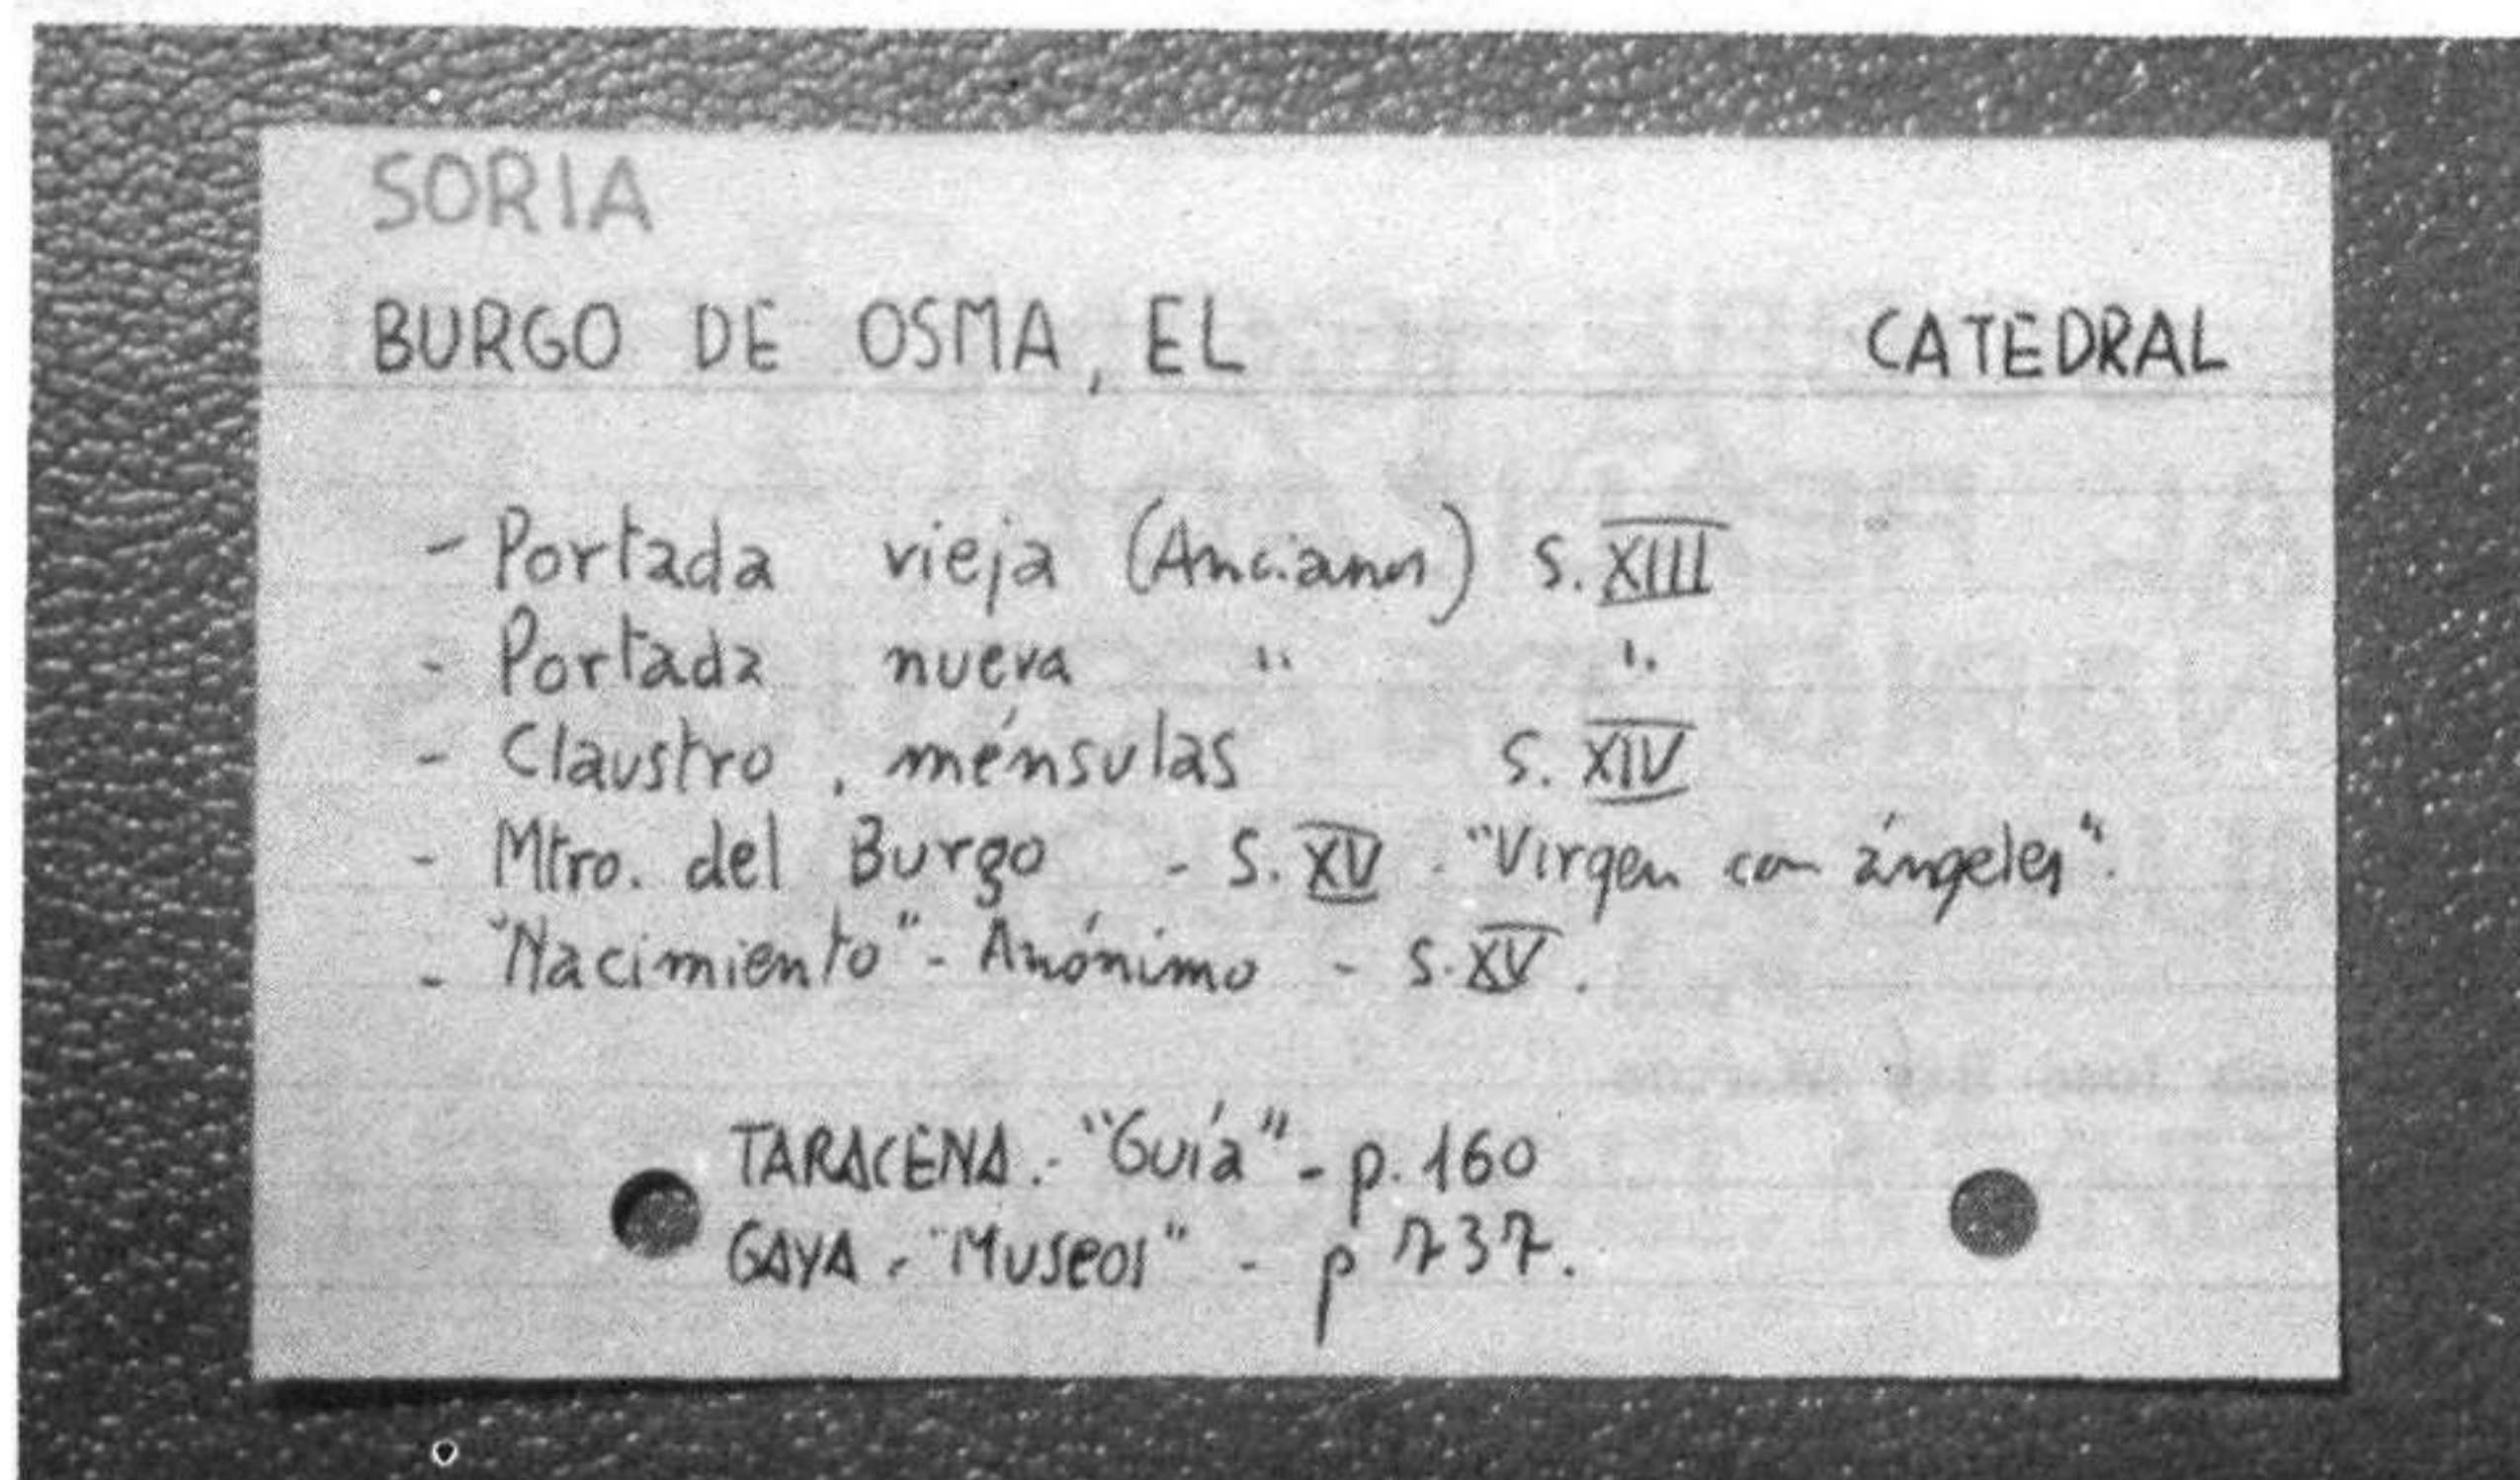 SORIA
BURGO DE OSMA, EL CATEDRAL
- Portada vieja (Ancianos) S. XIII
- Portada nueva " "
- Claustro, ménsulas S. XIV
- Mtro. del Burgo - S. XV - "Virgen con ángeles".
- "Nacimiento" - Anónimo - S. XV.
TARACENA.- "Guía" - p. 160
GAYA.- "Museos" - p 737.